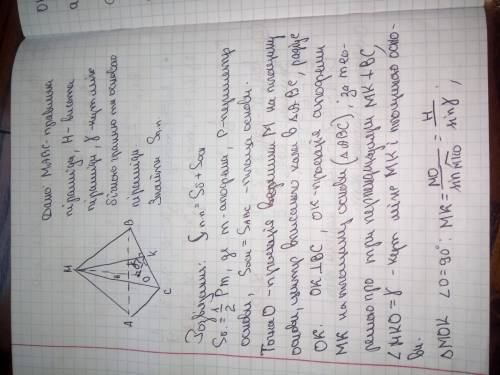 Дано МАВС-правильна
піраміда, H-висота
піраміди, γ-кут між
бічною гранню та основою
піраміди
Знайти Sп.п
M
A
B
C
O
K
H
γ
Розв'язання: Sп.п = Sб + Sосн
Sб = 1/2 Pm, де m-апофема, P-периметр
основи, Sосн = SABC - площа основи.
Точка О-проекція вершини М на площину
основи, центр вписаного кола в ΔABC, радіус
OK OK⊥BC, OK-проекція апофеми
MK на площину основи (ΔABC), за тео-
ремою про три перпендикуляри MK⊥BC,
∠MKO=γ - кут між MK і площиною осно-
ви.
ΔMOK ∠O=90°: MK = MO/sin MKO = H/sin γ;